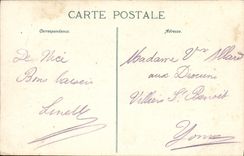 CARTE POSTALE
Correspondance.
Adresse.
De Nice
Bons baisers
Madame Vve Allard
aux Drouins
Villiers St Benoit
Yonne